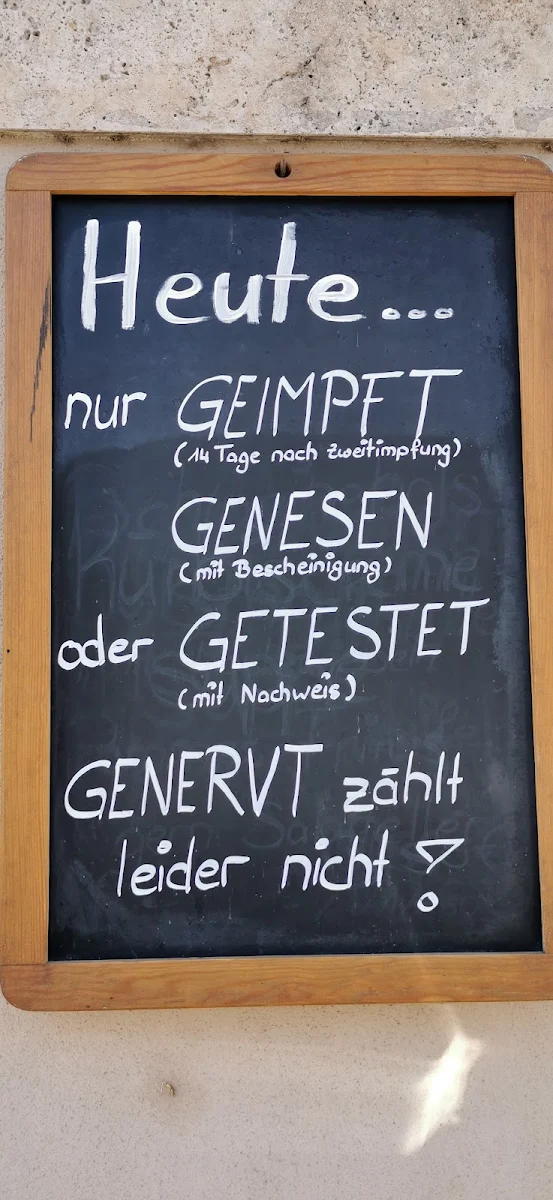 Heute...
nur GEIMPFT
(14 Tage nach Zweitimpfung)
GENESEN
(mit Bescheinigung)
oder GETESTET
(mit Nachweis)
GENERVT zählt
leider nicht!